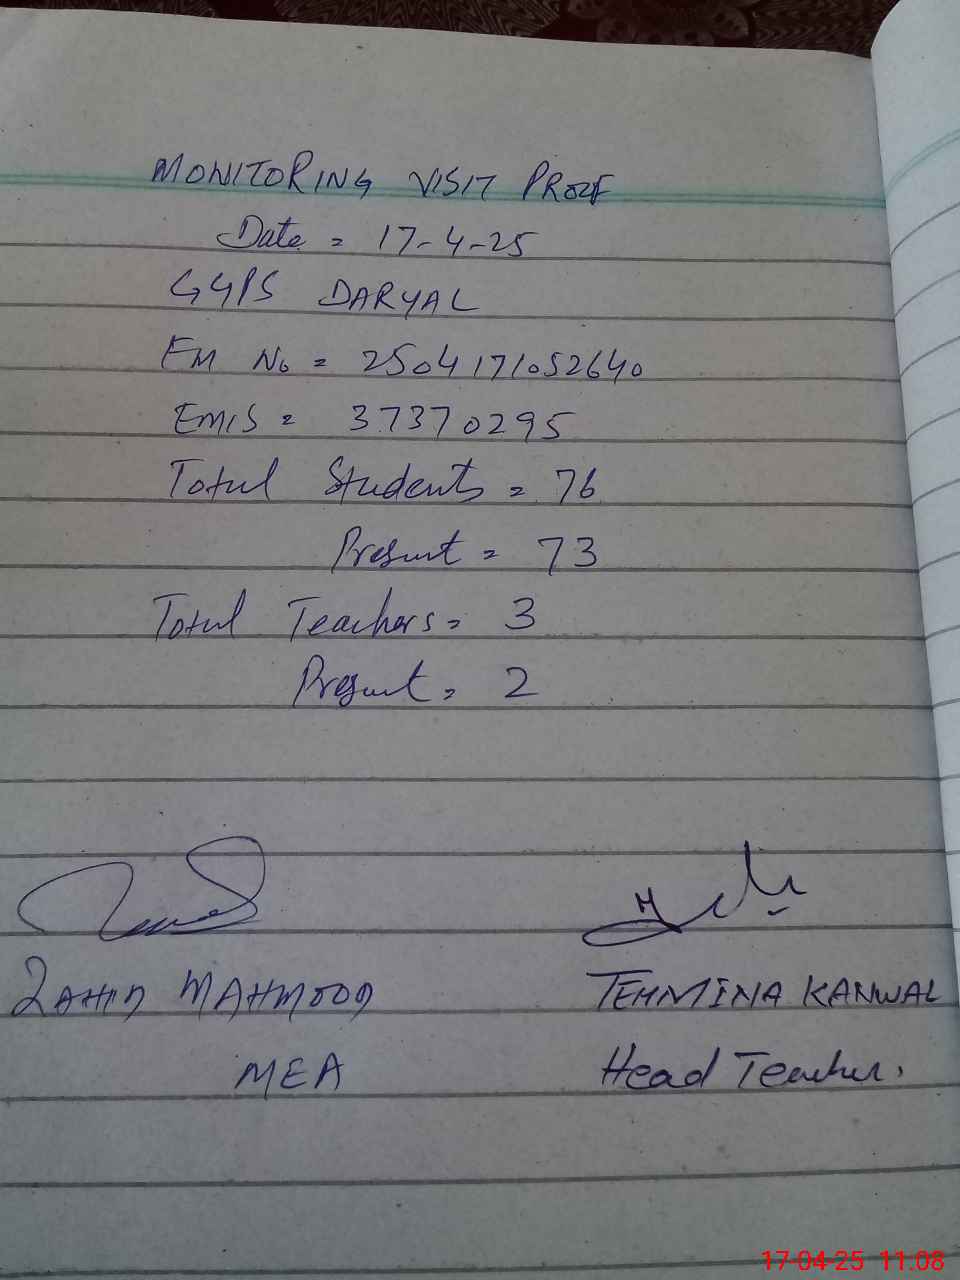 MONITORING VISIT PROOF
Date = 17-4-25
GGPS DARYAL
EM No = 2504171052640
EMIS = 37370295
Total Students = 76
Present = 73
Total Teachers = 3
Present = 2
ZAHID MAHMOOD
TEHMINA KANWAL
MEA
Head Teacher.
17-04-25 11:08